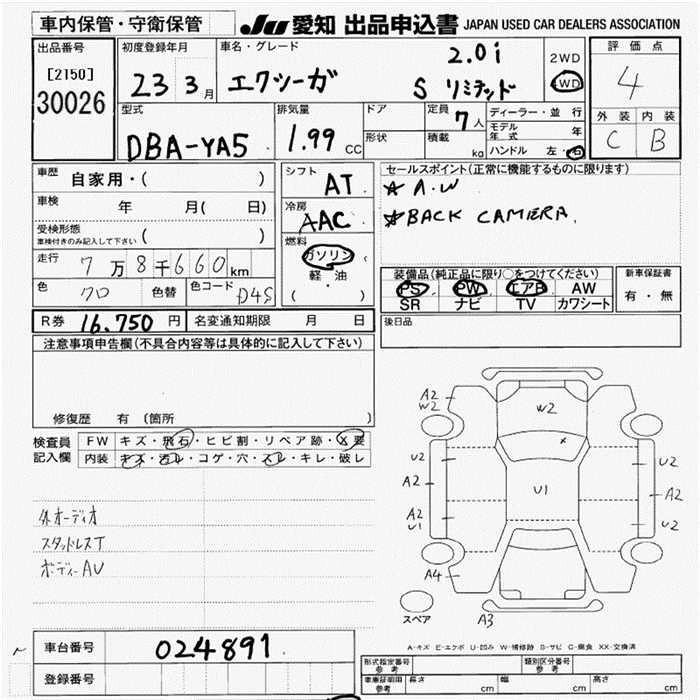 車内保管・守衛保管
JU 愛知 出品申込書 JAPAN USED CAR DEALERS ASSOCIATION
出品番号
[2150]
30026
初度登録年月
23 3月
車名・グレード
2.0i
エクシーガ S リミテッド
2WD
4WD
評価点
4
外装 内装
C B
型式
DBA-YA5
排気量
1.99 CC
ドア
形状
定員 7人
積載 kg
ディーラー・並行
モデル年式 年
ハンドル 左・右
車歴 自家用・( )
車検 年 月( 日)
受検形態
車検付きのみ記入して下さい ( )
走行 7万8千660km
色 クロ 色替 色コード D4S
シフト AT
冷房 AAC
燃料
ガソリン
軽・油
( )
セールスポイント(正常に機能するものに限ります)
★A.W
★BACK CAMERA.
装備品(純正品に限り○をつけてください)
PS PW エアB AW
SR ナビ TV カワシート
新車保証書
有・無
R券 16,750円 名変通知期限 月 日
後日品
注意事項申告欄(不具合内容等は具体的に記入して下さい)
修復歴 有 (箇所 )
検査員
記入欄
FW キズ・飛石・ヒビ割・リペア跡・X要
内装 キズ・汚レ・コゲ・穴・スレ・キレ・破レ
外オーディオ
スタッドレスT
ボディーAU
A2
W2
W2
U2
A2
A2
U1
A4
U1
U2
A2
U2
A3
スペア
A-キズ E-エクボ U-凹み W-補修跡 S-サビ C-腐食 XX-交換済
車台番号 024891
登録番号
形式指定番号
参考
類別区分番号
参考
車庫証明用
参考
長さ cm 幅 cm 高さ cm